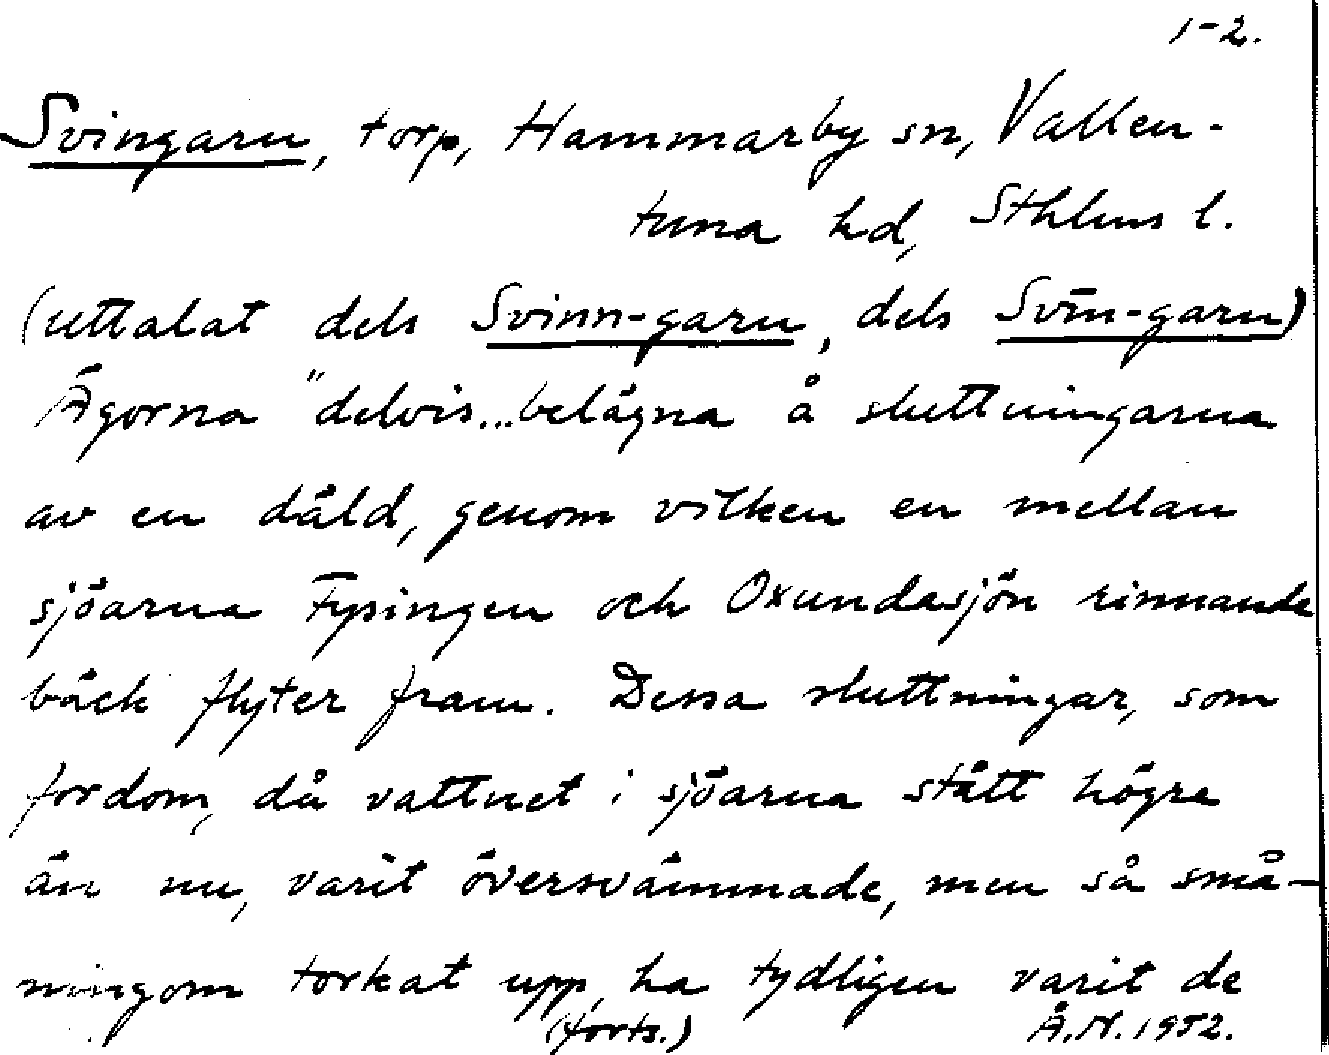 1-2.
Svingarn, torp, Hammarby sn, Vallen-
tuna hd, Sthlms l.
(uttalat dels Svinn-garn, dels Svīn-garn)
Ägorna "delvis...belägna å sluttningarna
av en däld, genom vilken en mellan
sjöarna Fysingen och Oxundasjön rinnande
bäck flyter fram. Dessa sluttningar, som
fordom, då vattnet i sjöarna stått högre
än nu, varit översvämmade, men så små-
ningom torkat upp, ha tydligen varit de
(forts.) Å.N. 1952.